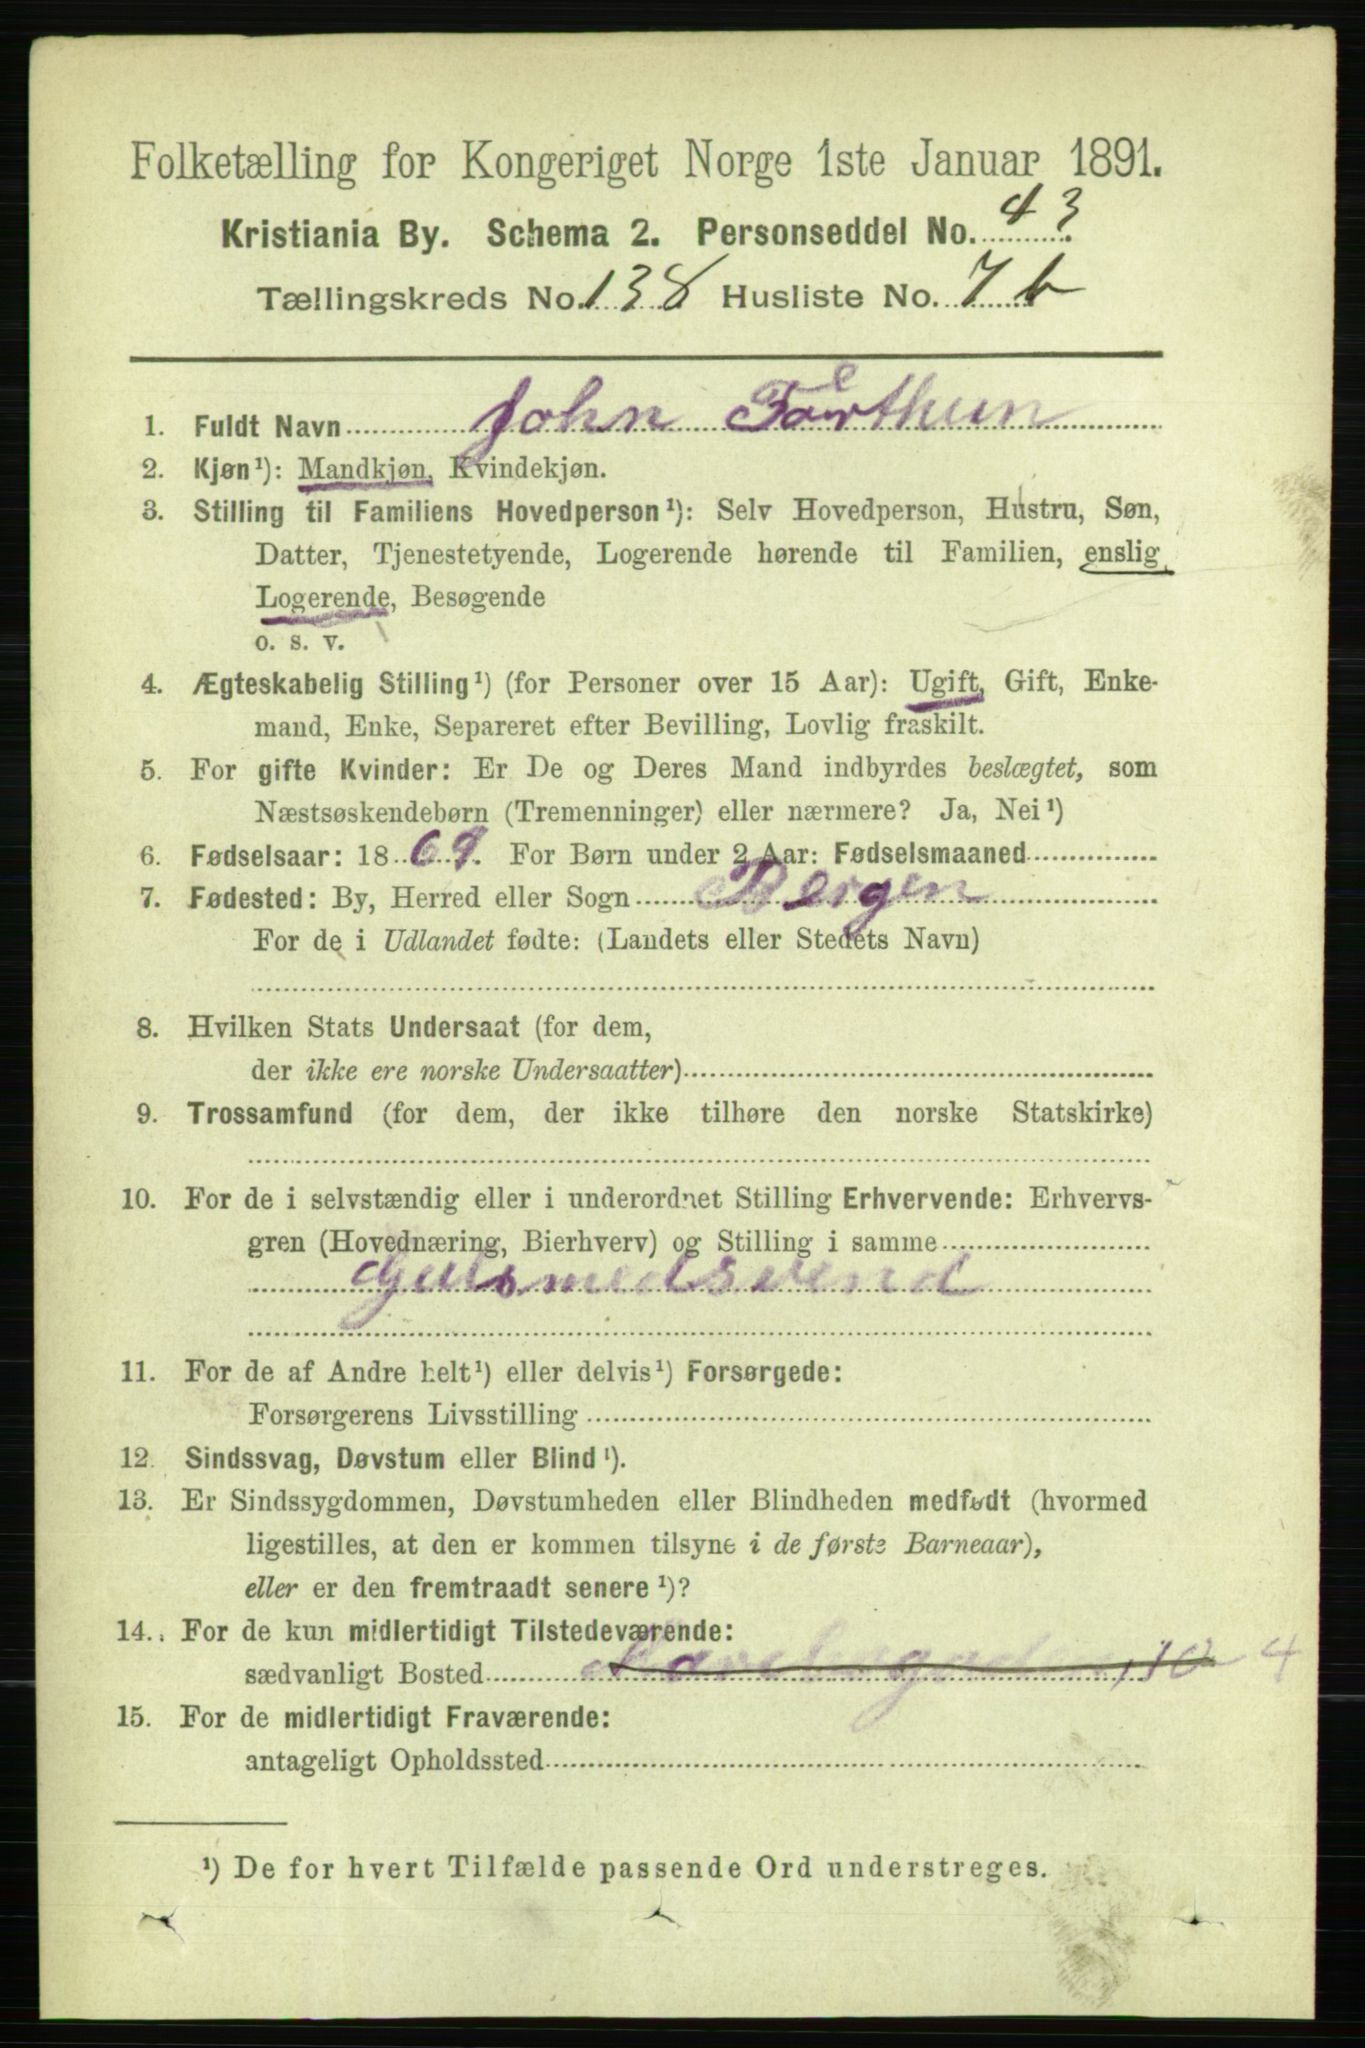 Folketælling for Kongeriget Norge 1ste Januar 1891.
Kristiania By. Schema 2. Personseddel No. 43
Tællingskreds No. 138 Husliste No. 7 b
1. Fuldt Navn John
2. Kjøn¹): Mandkjøn, Kvindekjøn.
3. Stilling til Familiens Hovedperson¹): Selv Hovedperson, Hustru, Søn,
Datter, Tjenestetyende, Logerende hørende til Familien, enslig
Logerende, Besøgende
o. s. v.
4. Ægteskabelig Stilling¹) (for Personer over 15 Aar): Ugift, Gift, Enke-
mand, Enke, Separeret efter Bevilling, Lovlig fraskilt.
5. For gifte Kvinder: Er De og Deres Mand indbyrdes beslægtet, som
Næstsøskendebørn (Tremenninger) eller nærmere? Ja, Nei¹)
6. Fødselsaar: 1869. For Børn under 2 Aar: Fødselsmaaned
7. Fødested: By, Herred eller Sogn Bergen
For de i Udlandet fødte: (Landets eller Stedets Navn)
8. Hvilken Stats Undersaat (for dem,
der ikke ere norske Undersaatter)
9. Trossamfund (for dem, der ikke tilhøre den norske Statskirke)
10. For de i selvstændig eller i underordnet Stilling Erhvervende: Erhvervs-
gren (Hovednæring, Bierhverv) og Stilling i samme
Gulsmedsvend
11. For de af Andre helt¹) eller delvis¹) Forsørgede:
Forsørgerens Livsstilling
12. Sindssvag, Døvstum eller Blind¹).
13. Er Sindssygdommen, Døvstumheden eller Blindheden medfødt (hvormed
ligestilles, at den er kommen tilsyne i de første Barneaar),
eller er den fremtraadt senere¹)?
14. For de kun midlertidigt Tilstedeværende:
sædvanligt Bosted 10 4
15. For de midlertidigt Fraværende:
antageligt Opholdssted
¹) De for hvert Tilfælde passende Ord understreges.